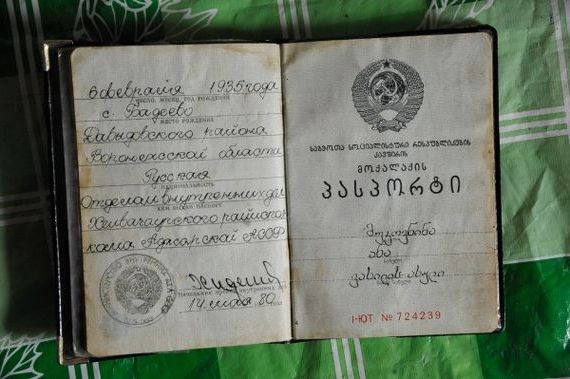 6 февраля 1935 года
число, месяц, год рождения
с. Бадеево
место рождения
Давыдовского района
Воронежской области
Русская
национальность
Отделом внутренних дел
кем выдан паспорт
Хелвачаурского райиспол
кома Аджарской АССР
14 мая 80 года
საბჭოთა სოციალისტური რესპუბლიკების
კავშირის
მოქალაქის
პასპორტი
ანა
სახელი
I-ЮТ № 724239